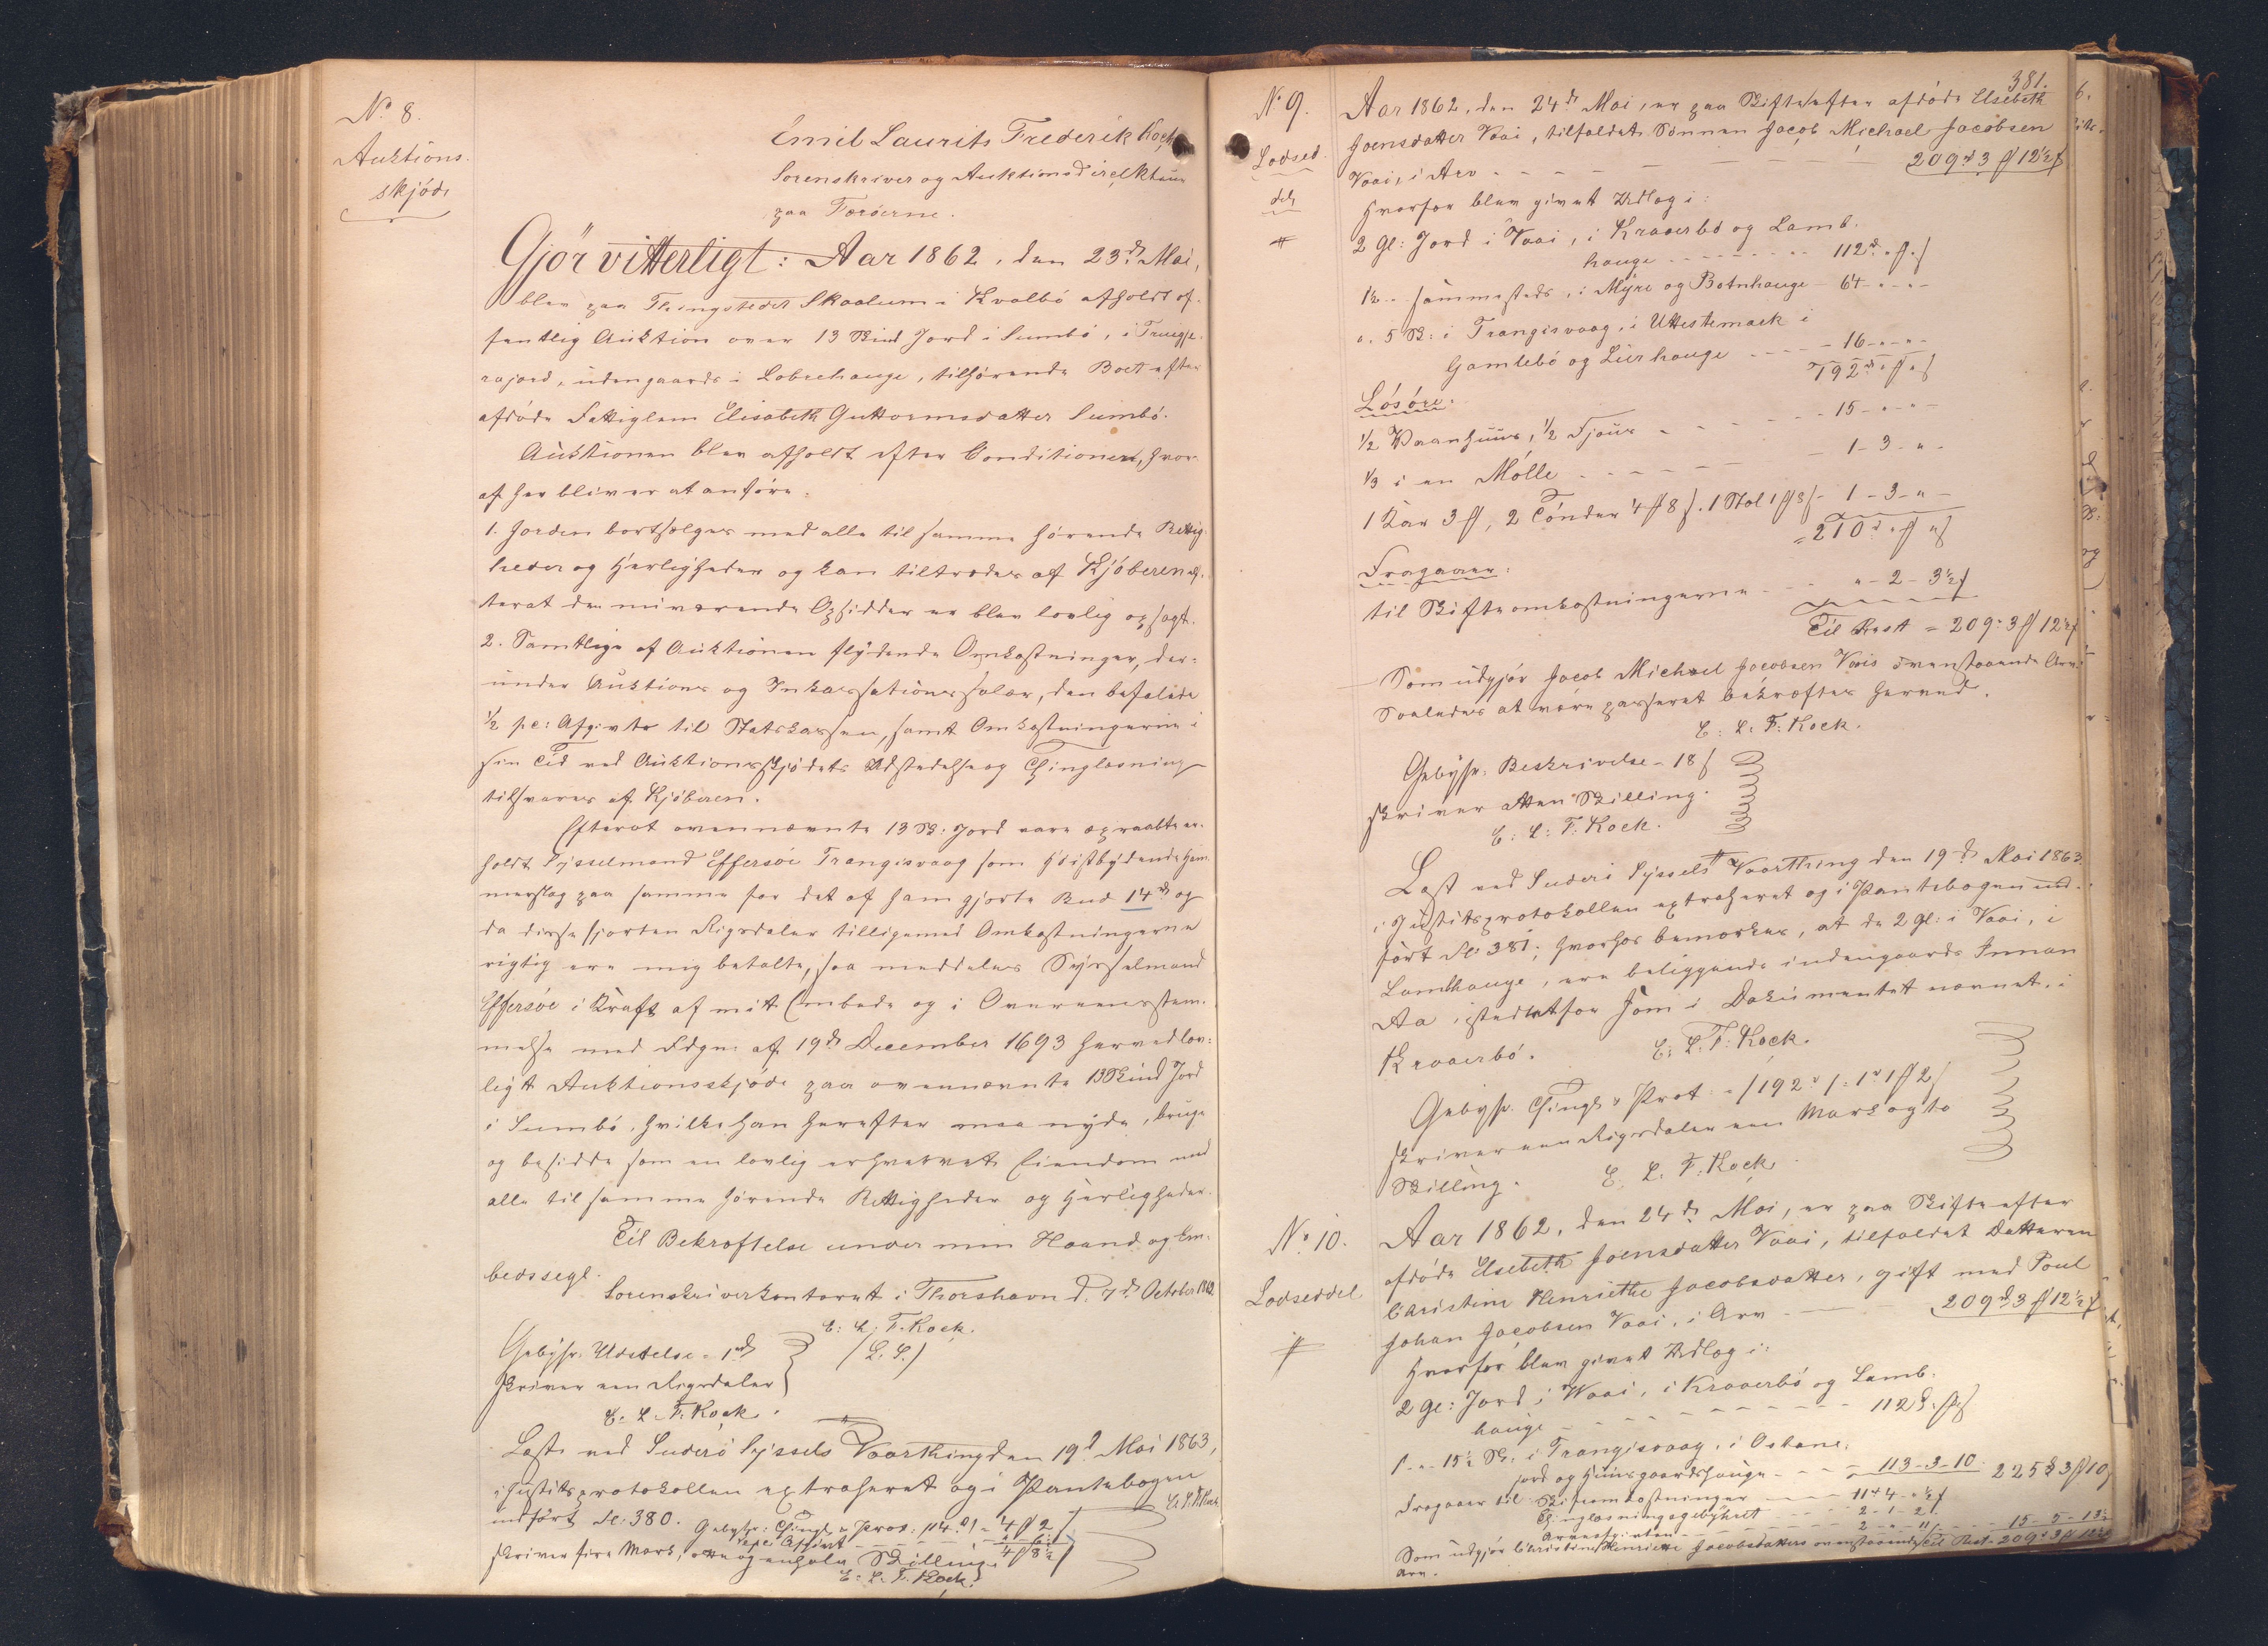 No 8.
Auktions-
skjöde
Emil Laurits Frederik Kock
Sorenskriver og Auktionsdirekteur
paa Færöerne.
Gjör vitterligt: Aar 1862, den 23de Mai,
blev paa Thingstedet Skaalum i Kvalbö afholdt of-
fentlig Auktion over 13 Skind Jord i Sumbö, i
rajord, udengaards i Lobrehauge, tilhörende Boet efter
afdöde Fattiglem Elisabeth Guttormsdatter Sumbö.
Auktionen blev afholdt efter Conditioner, hvor-
af her bliver at anföre:
1. Jorden bortsælges med alle til samme hörende Rettig-
heder og Herligheder og kan tiltrædes af Kjöberen ef-
terat den nuværende Opsidder er blev lovlig opsagt.
2. Samtlige af Auktionen flydende Omkostninger, der-
under Auktions og Inkassationssalær, den befalede
½ pc: Afgivt til Statskassen, samt Omkostningerne i
sin Tid ved Auktionsskjödets Udstedelse og Thinglæsning
tilsvares af Kjöberen.
Efterat ovennævnte 13 Sk: Jord vare opraabte er-
holdt Sysselmand Effersöe Trangisvaag som Höistbydende Ham-
merslag paa samme for det af ham gjorte Bud 14rd og
da disse fjorten Rigsdaler tilligemed Omkostningerne
rigtig ere mig betalte, saa meddeles Sysselmand
Effersöe i Kraft af mit Embede og i Overeensstem-
melse med Fdgn. af 19de December 1693 herved lov-
ligt Auktionsskjöde paa ovennævnte 13 Skind Jord
i Sumbö, hvilke han herefter maa nyde, bruge
og besidde som en lovlig erhvervet Eiendom med
alle til samme hörende Rettigheder og Herligheder.
Til Bekræftelse under min Haand og Em-
bedssegl.
Sorenskriverkontoret i Thorshavn d. 7de October 1862.
E: L: F. Kock.
(L. S.)
Gebyhr. Udstedelse = 1rd
skriver een Rigsdaler
E. L. F. Kock.
Læst ved Suderö Syssels Vaarthing den 19d Mai 1863,
i Justitsprotokollen extraheret og i Pantebogen
indfört Sl: 380.
Gebyhr: Thingl. & Prot: /14rd/ = 4 ß 2
4 ß 8½
skriver fire Mark, otte og enhalv Skilling
E: L. F. Kock.
381.
No 9.
Lodsed-
del
Aar 1862, den 24de Mai, er paa Skifte efter afdöde Elsebeth
Joensdatter Vaai, tilfaldet Sönnen Jacob Michael Jacobsen
Vaai, i Arv - - - 209rd 3 ß 12½
Hvorfor blev givet Udlæg i:
2 Gl: Jord i Vaai, i Kraaerbö og Lamb-
hauge - - - 112rd
12 - sammesteds, i Myre og Botnhauge - 64 - -
5 Sk: i Trangisvaag, i Uttestemark i
Gamlebö og Lürhauge - - - 16 - -
192rd
Lösöre:
½ Vaanhuus, ½ Fjöus - - - 15 - -
⅓ i en Mölle - - - 1 - 3 -
1 Kar 3 ß, 2 Tönder 4 ß 8. 1 Stol 1 ß 8 - 1 - 3 -
= 210rd
Fragaaer:
til Skifteomkostningerne - - - 2 - 3½
Til Rest = 209 - 3 ß 12½
Som udgjör Jacob Michael Jacobsen Vaais ovenstaaende Arv.
Saaledes at være passeret bekræftes herved.
E: L: F: Kock.
Gebyhr: Beskrivelse - 18
skriver atten Skilling.
E: L: F: Kock.
Læst ved Suderö Syssels Vaarthing den 19de Mai 1863
i Justitsprotokollen extraheret og i Pantebogen ind-
fört Sl: 381; hvorhos bemærkes, at de 2 Gl: i Vaai, i
Lambhauge, ere beliggende indengaards Innan
Aa istedetfor som i Dokumentet nævnet, i
Kraaerbö.
E: L: F: Kock.
Gebyhr. Thingl. & Prot - /192rd/ = 1rd 1 ß 2
skriver een Rigsdaler een Mark og to
Skilling.
E. L. F. Kock.
No 10.
Lodseddel
Aar 1862, den 24de Mai, er paa Skifte efter
afdöde Elsebeth Joensdatter Vaai, tilfaldet Datteren
Christine Henriethe Jacobsdatter, gift med Poul
Johan Jacobsen Vaai, i Arv - 209rd 3 ß 12½
Hvorfor blev givet Udlæg i:
2 Gl: Jord i Vaai, i Kraaerbö og Lamb-
hauge - - - 112
1 - - 15½ Sk: i Trangisvaag, i
jord og Huusgaardshauge - - - 113 - 3 - 10 225rd 3 ß 10
Fragaaer til Skifteomkostninger - 11 - 4 - ½
Thinglæsningsgebyhret - 2 - 1 - 2
Arveafgivten - 2 - - 15 - 5 - 13½
Som udgjör Christine Henriette Jacobsdatters ovenstaaende Til Rest - 209rd 3 ß 12½
Arv.